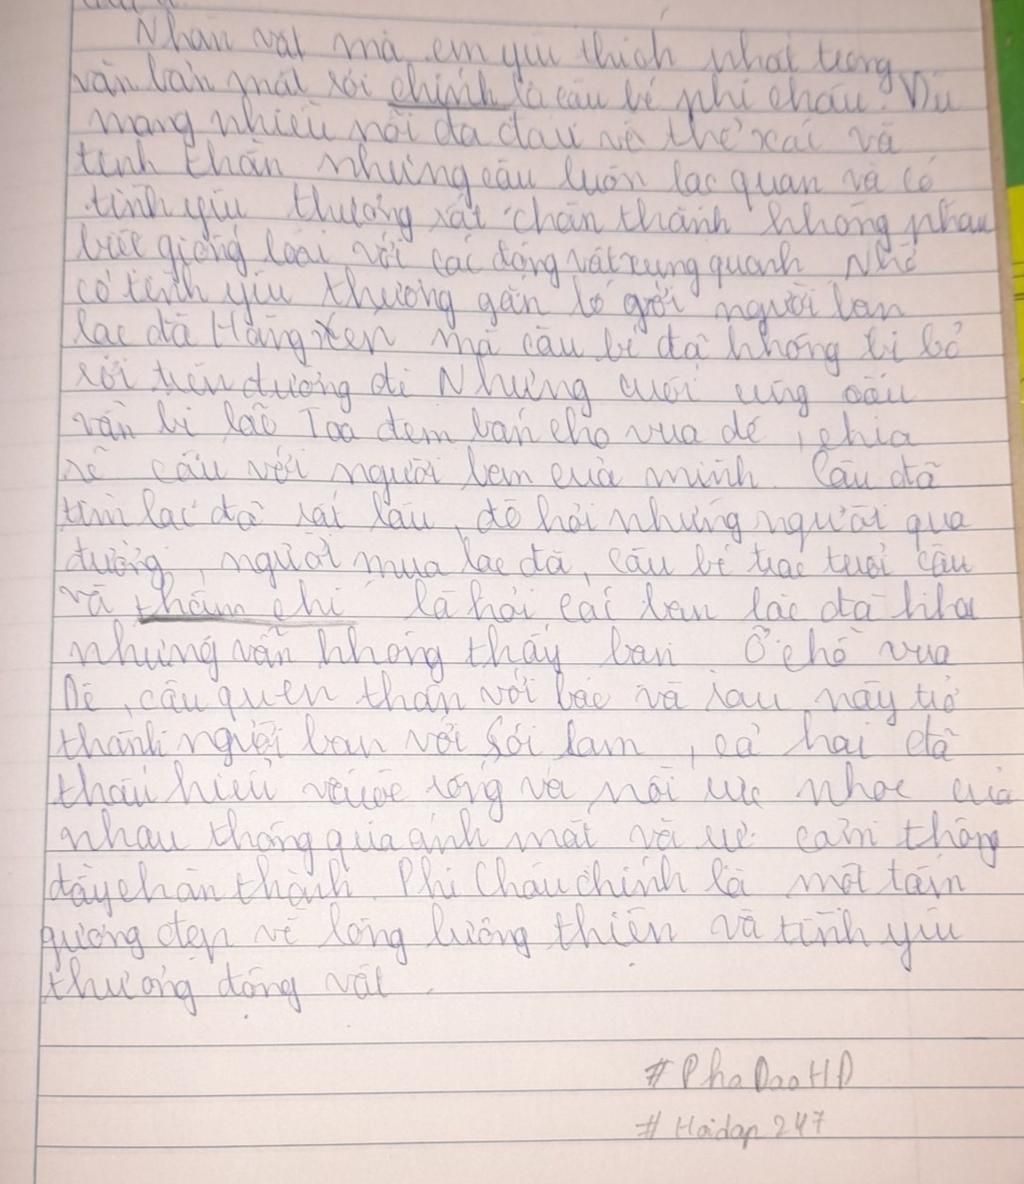 Nhân vật mà em yêu thích nhất trong
văn bản mắt sói chính là cậu bé phi châu. Dù
mang nhiều nỗi đa đau về thể xác và
tinh thần nhưng cậu luôn lạc quan và có
tình yêu thương rất chân thành không phân
biệt giống loài với các động vật xung quanh Nhờ
có tình yêu thương gắn bó giới người bạn
lạc đà Hàng xén mà cậu bé đã không bị bỏ
rơi trên đường đi Nhưng cuối cùng cậu
vẫn bị lão Toa đem bán cho vua dê, chia
rẽ cậu với người bem của mình. Cậu đã
tìm lạc đà rất lâu, đề hỏi những người qua
đường, người mua lạc đà, cậu bé trạc tuổi cậu
và thậm chí là hỏi các bạn lạc đà kha
nhưng vẫn không thấy bạn. Ở chỗ vua
Dê, cậu quen thân với báo và sau này trở
thành người bạn với Sói lam, cả hai đã
thấu hiểu cuộc sống và nỗi cực nhọc của
nhau thông qua ánh mắt và sự cảm thông
đầy chân thành. Phi Châu chính là một tấm
gương đẹp về lòng lương thiện và tình yêu
thương động vật.
#PhaDaoHD
#Hoidap247